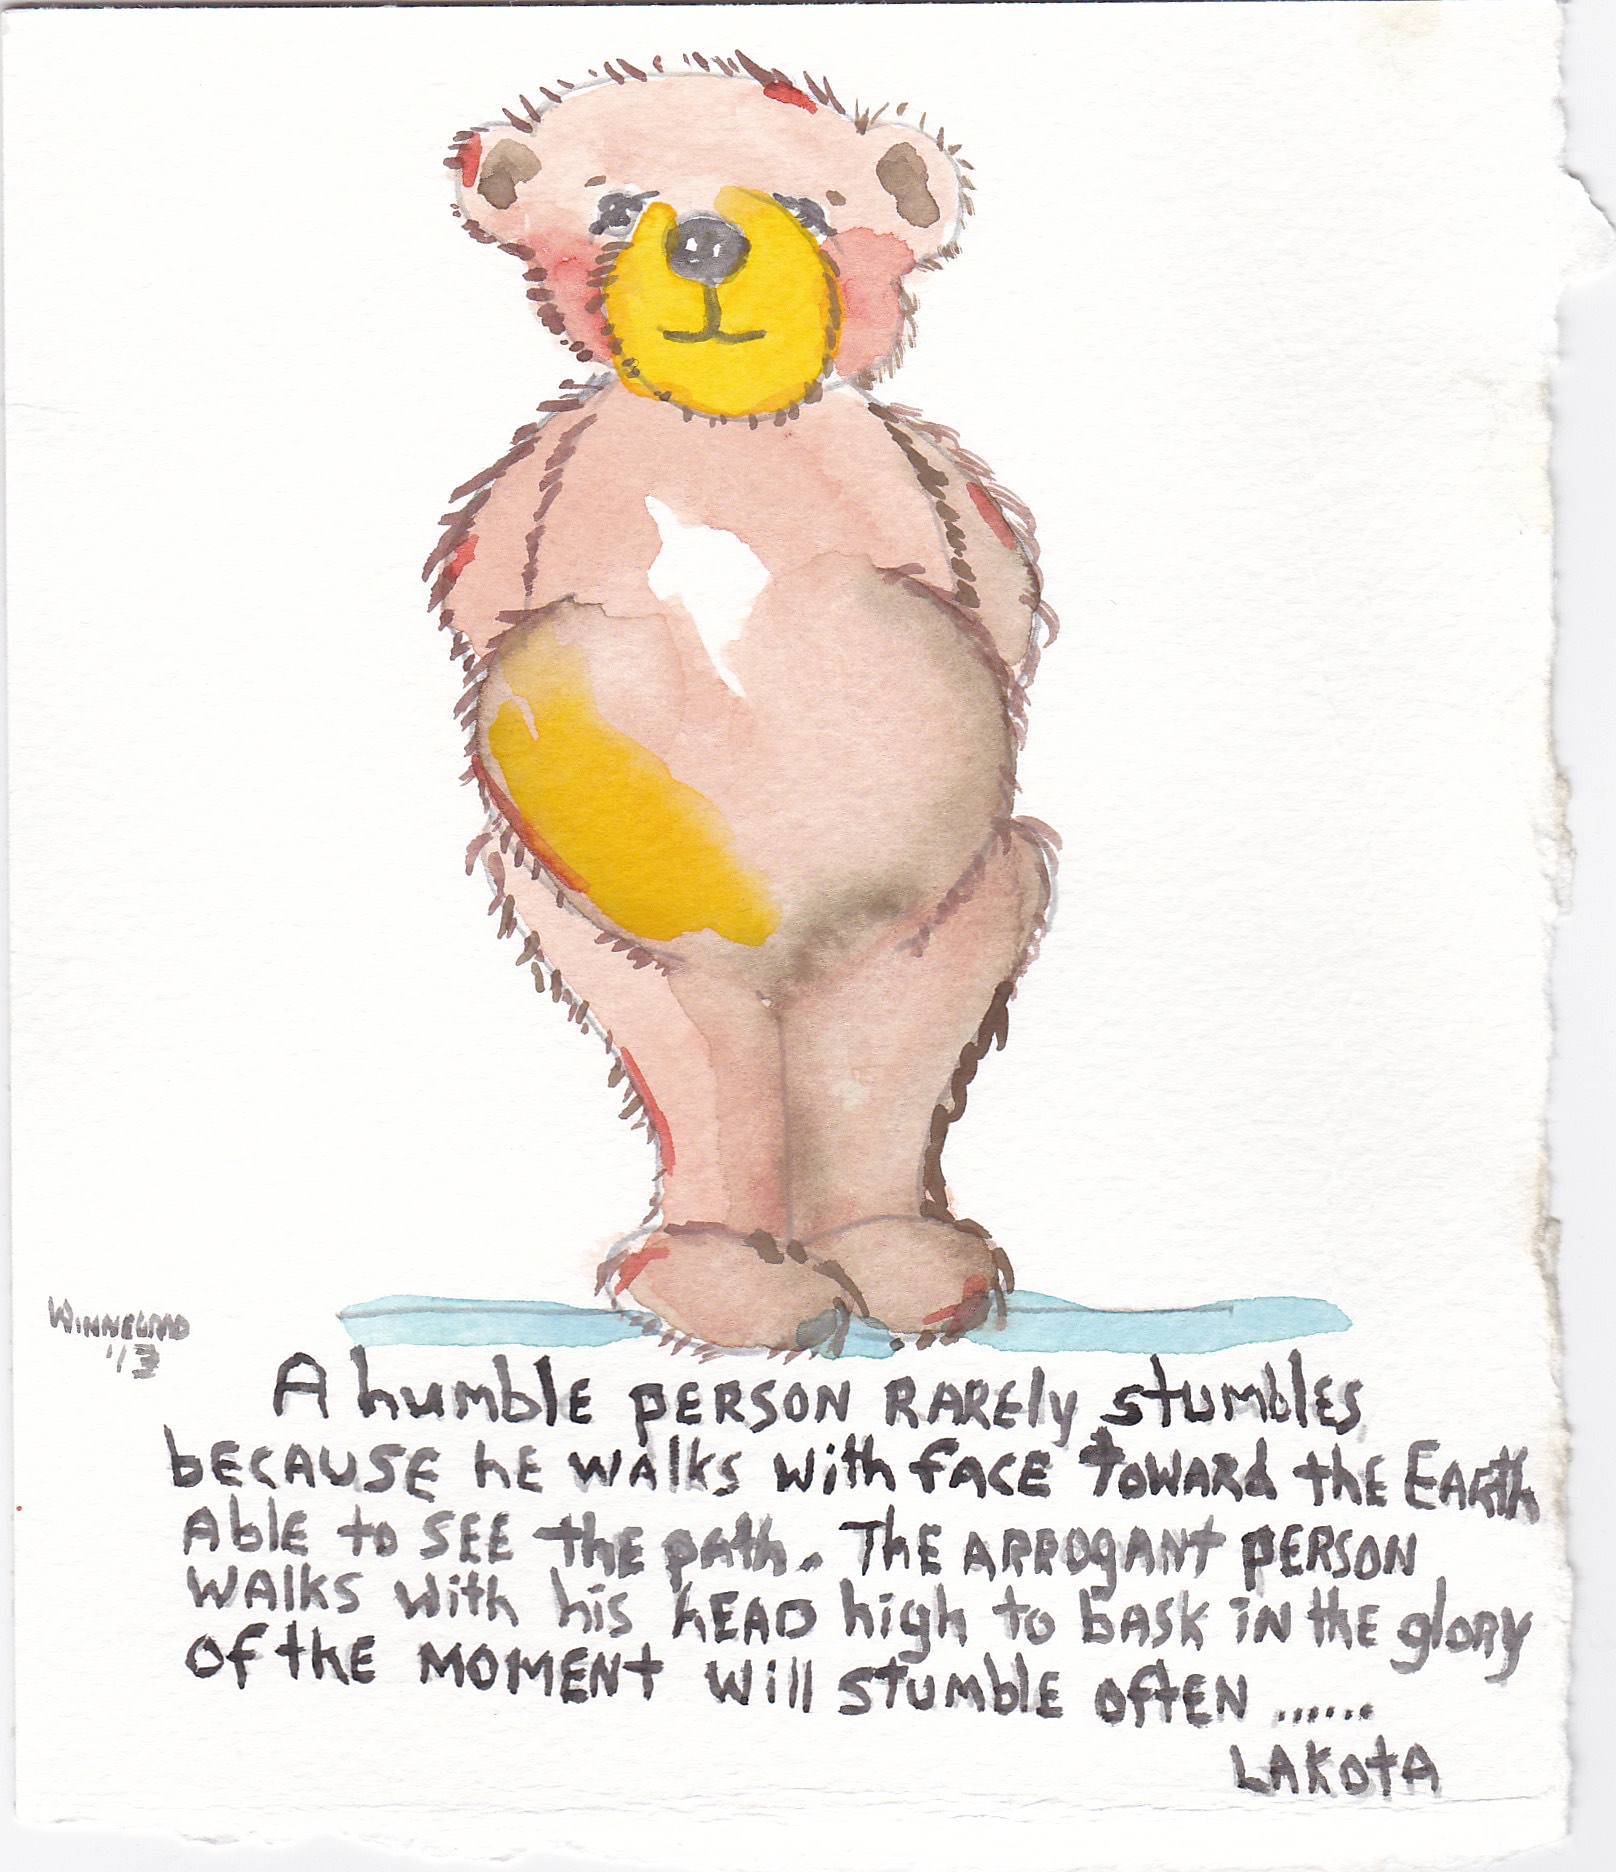 WINNEGRAD
'13
A humble PERSON RARELy stumbles
bECAUSE hE WAlks with fACE toward the EARth
AblE to SEE the path. The ARROgANt PERSON
WAlks with his hEAD high to bASK iN the glory
of the MOMENt will stumblE oftEN ......
LAKOtA